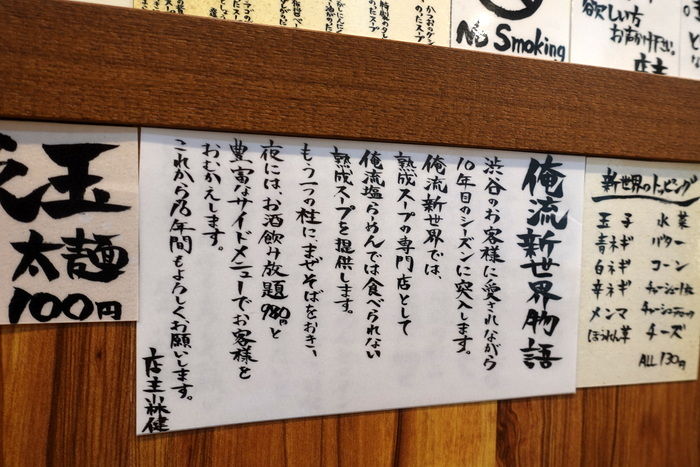 No Smoking
欲しい方
お声かけ下さい。
店主
俺流新世界物語
渋谷のお客様に愛されながら
10年目のシーズンに突入します。
俺流新世界では、
熟成スープの専門店として
俺流塩らーめんでは食べられない
熟成スープを提供します。
もう一つの柱にまぜそばをおき、
夜にはお酒飲み放題980円と
豊富なサイドメニューでお客様を
おむかえします。
これから10年間もよろしくお願いします。
店主小林健
玉
太麺
100円
新世界のトッピング
玉子
青ネギ
白ネギ
辛ネギ
メンマ
ほうれん草
水菜
バター
コーン
チーズ
ALL 130円